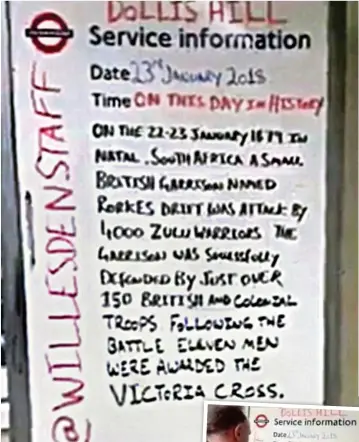 DOLLIS HILL
Service information
Date 23rd JANUARY 2018
Time ON THIS DAY IN HISTORY
ON THE 22-23 JANUARY 1879 IN
NATAL. SOUTH AFRICA A SMALL
BRITISH GARRISON NAMED
RORKES DRIFT WAS ATTACK BY
4000 ZULU WARRIORS THE
GARRISON WAS SUCESSFULLY
DEFENDED BY JUST OVER
150 BRITISH AND COLONIAL
TROOPS. FOLLOWING THE
BATTLE ELEVEN MEN
WERE AWARDED THE
VICTORIA CROSS.
@WILLESDENSTAFF
DOLLIS HILL
Service information
Date 23rd January 2018